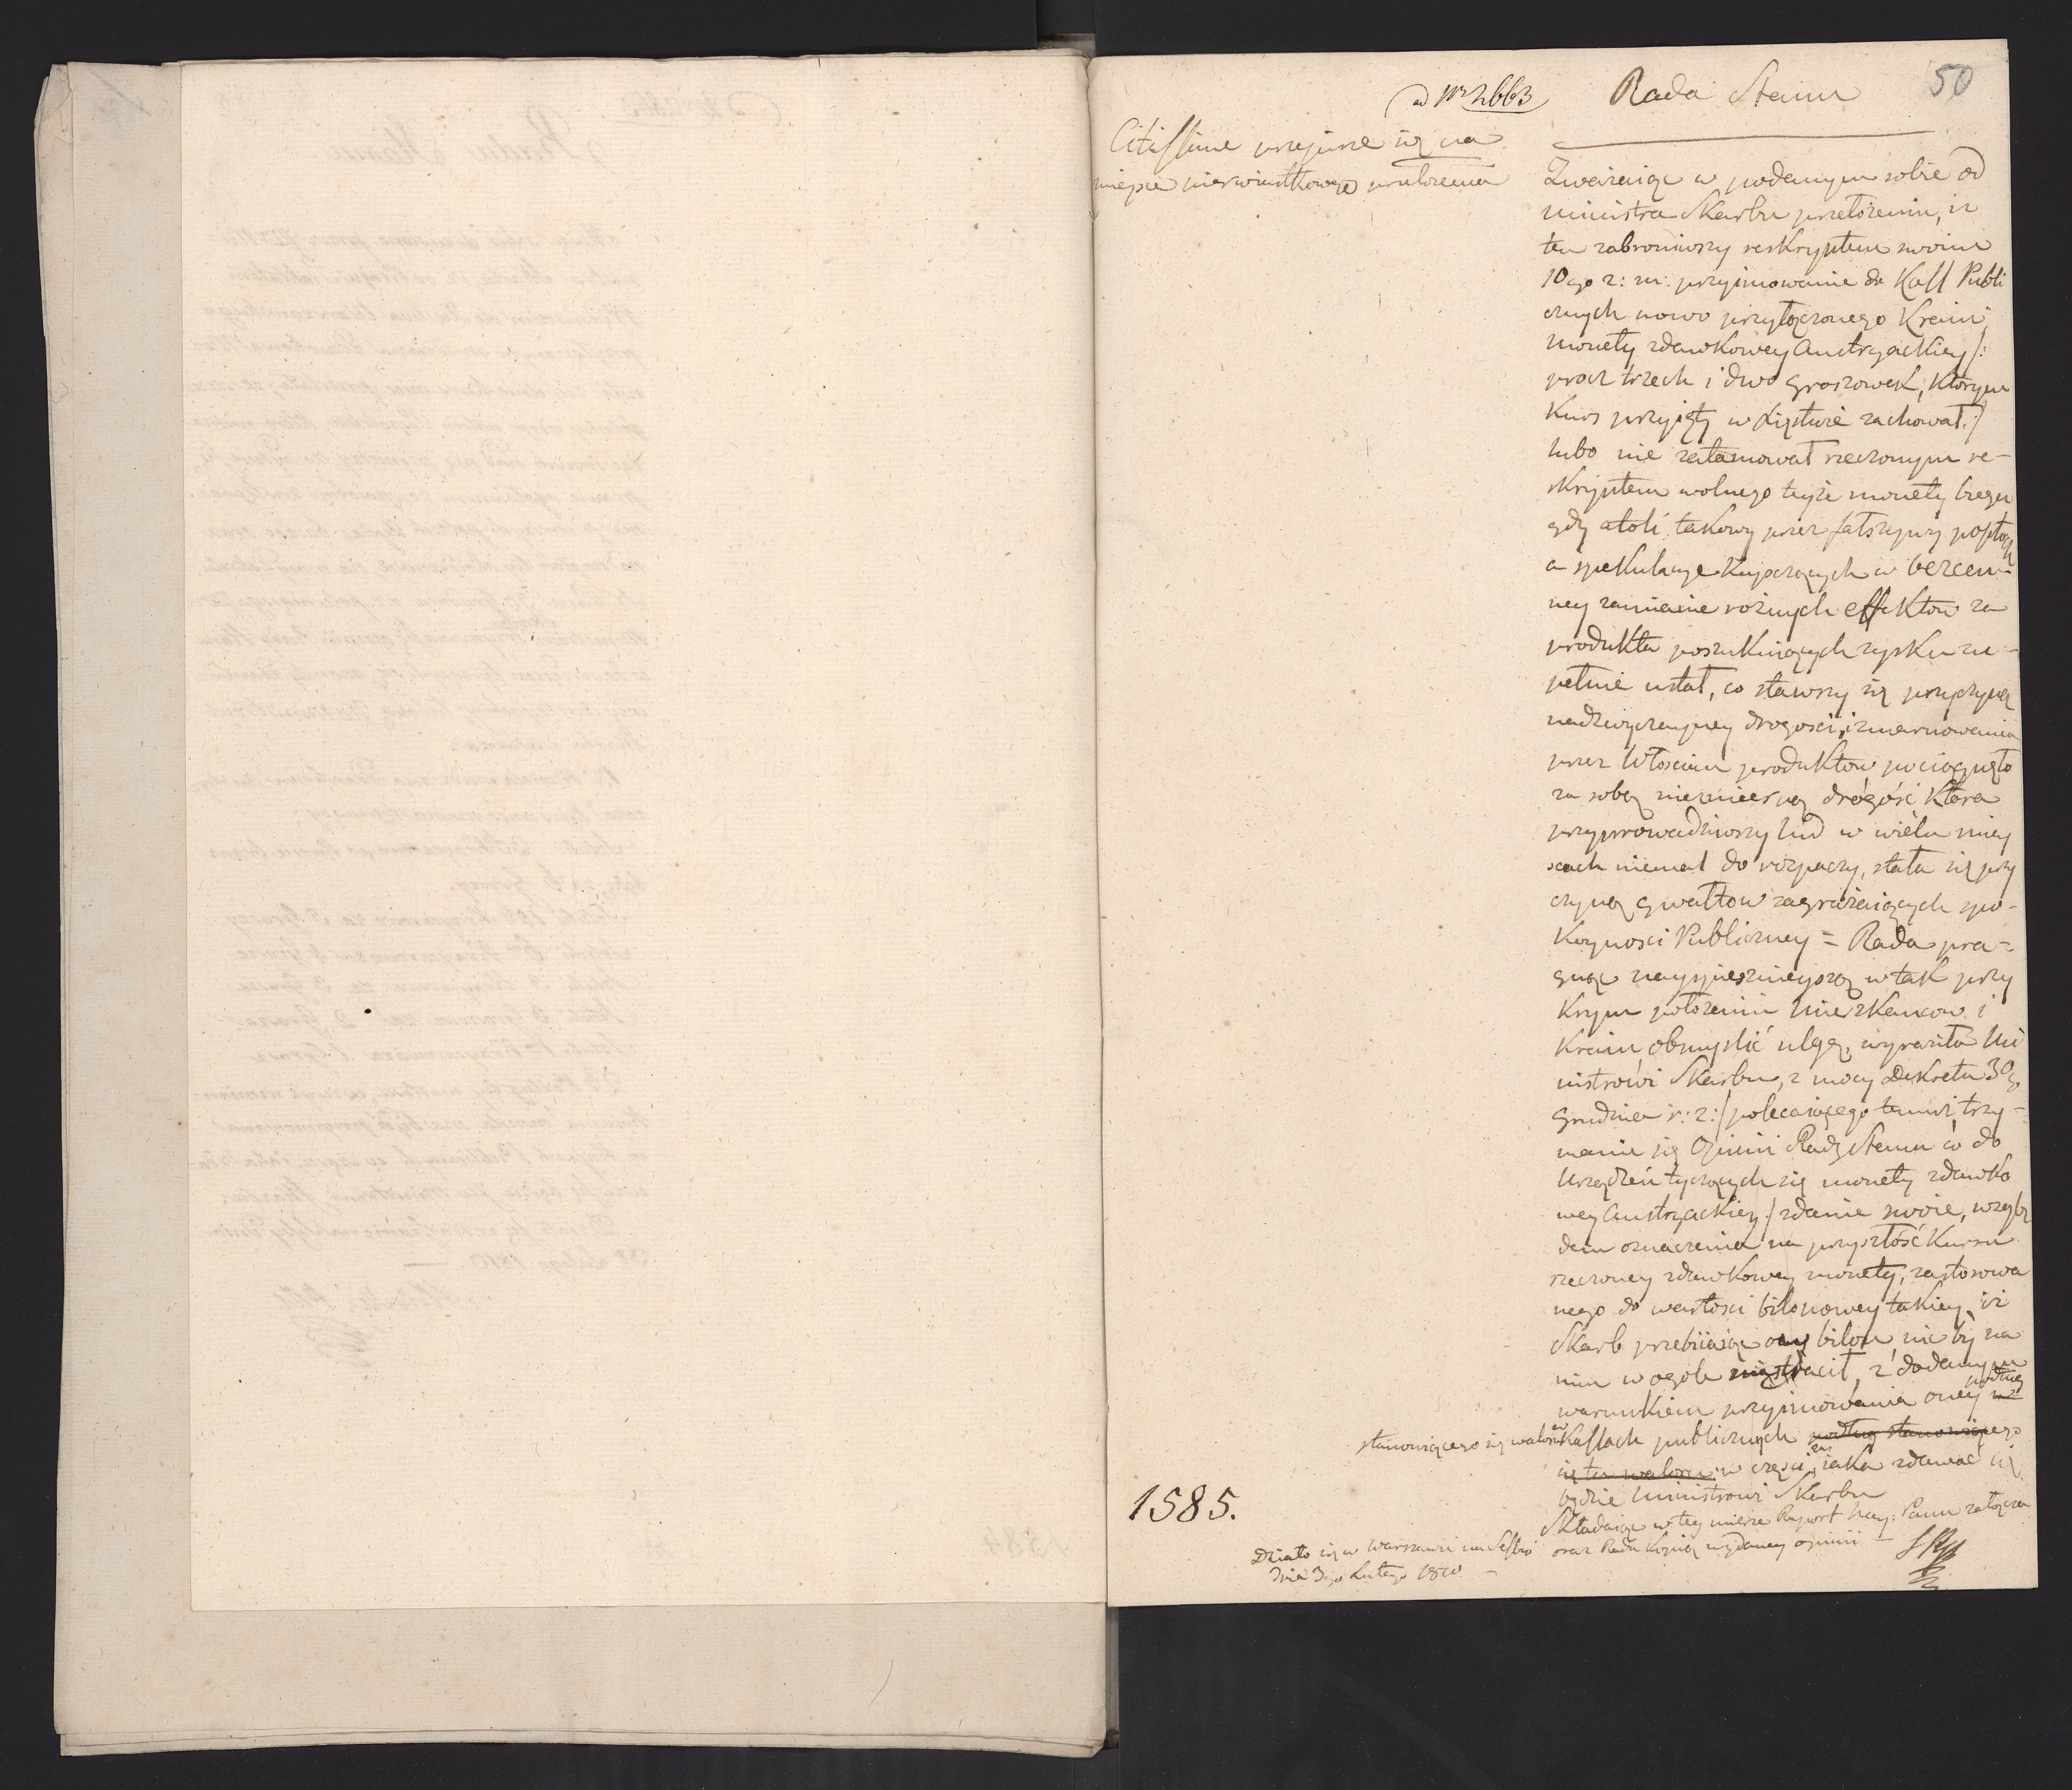 ad Nr 2663
Rada Stanu
50
Citissime przepisze się na
miejsce pierwiastkowego przełożenia
Zważaiąc w podanym sobie od
Ministra Skarbu przełożeniu, iż
ten zabroniwszy reskryptem swoim
10go z: m: przyimowanie do Kass Publi
cznych nowo przyłączonego Kraiu,
monety zdawkowey Austryackiey /:
procz trzech i dwu groszowek, ktorym
Kurs przyięty w Xięstwie zachował :/
lubo nie zatamował rzeczonym re-
skryptem wolnego teyże monety biegu
gdy atoli takowy przez fałszywy popłoch
a spekulacye Kupczących w bezcen-
ney zamianie rożnych effektow za
produkta poszukuiących zysku zu-
pełnie ustał, co stawszy się przyczyną
nadzwyczayney drogości, i zmarnowania
przez Włościan produktow, pociągnęło
za sobą niezmierną drogość ktora
przyprowadziwszy lud w wielu miey
scach niemal do rozpaczy, stała się przy
czyną gwałtow zagrażaiących spo-
koyności Publiczney = Rada pra-
gnąc nayspiesznieyszą w tak przy
krym położeniu Mieszkancow i
Kraiu, obmyślić ulgę, wyraziła Mi
nistrowi Skarbu, z mocy Dekretu 30go
Grudnia r: z: / polecaiącego temuż trzy-
manie się Opinii Rady Stanu co do
Urządzeń tyczących się monety zdawko
wey Austryackiey / zdanie swoie, wzglę
dem oznaczenia na przyszłość Kursu
rzeczoney zdawkowey monety, zastosowa
nego do wartości bilonowey takiey, iż
Skarb przebiiaiąc ony bilon, nic by na
nim w ogole nie stracił, z dodanym
warunkiem przyimowania oney podług
stanowiącego się waloru w Kassach publicznych podług stanowiącego
się tu waloru w części, iaka zdawać się
będzie Ministrowi Skarbu
Składaiąc w tey mierze Raport Nay: Panu załącza
oraz Rada Kopią wydaney opinii —
1585.
Działo się w Warszawie na Sessyi
dnia 3go Lutego 1810 —